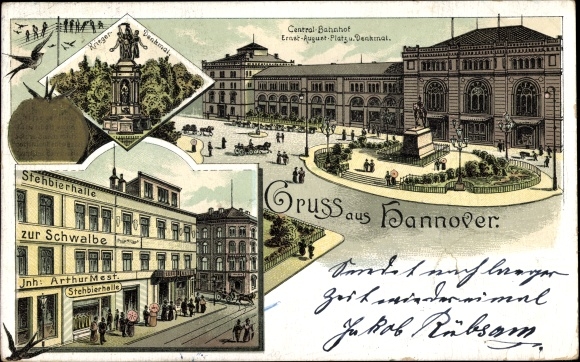 Krieger-Denkmal.
Central-Bahnhof
Ernst-August-Platz u. Denkmal.
Stehbierhalle
zur Schwalbe
Jnh: Arthur Mest.
Stehbierhalle
Gruss aus Hannover.
Sendet nach langer
Zeit wieder einmal
Jakob Rübsam